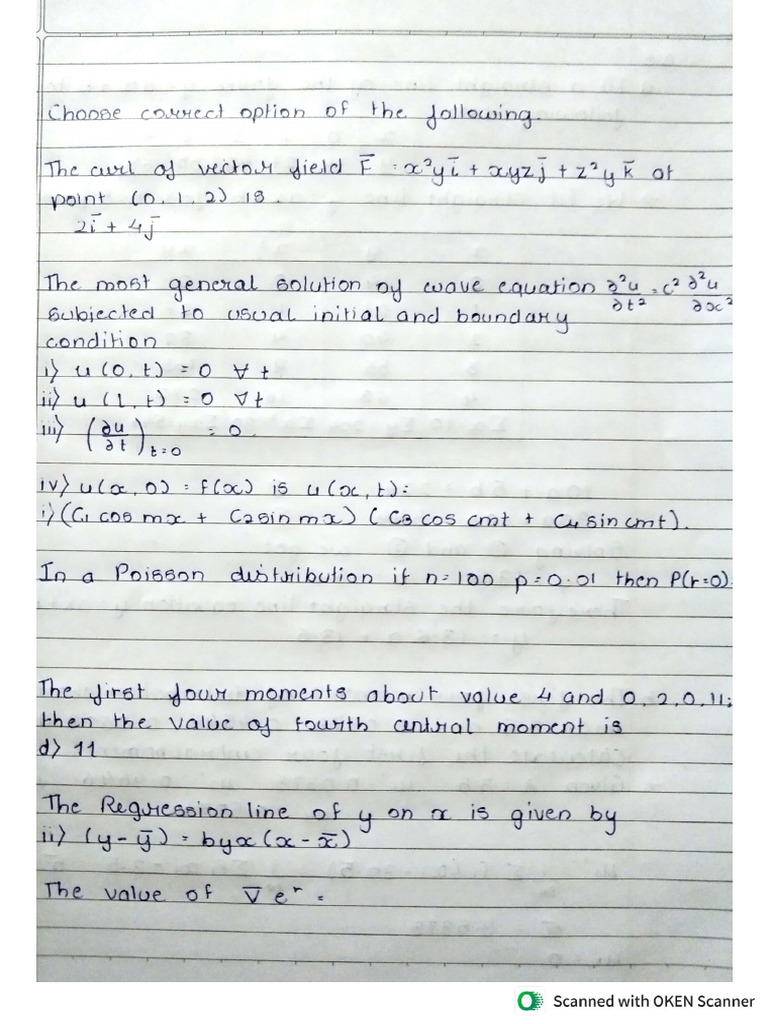 Choose correct option of the following.
The curl of vector field F̄ = x²yī + xyzj̄ + z²yk̄ at
point (0, 1, 2) is.
2ī + 4j̄
The most general solution of wave equation ∂²u/∂t² = c² ∂²u/∂x²
subjected to usual initial and boundary
condition
i) u(0, t) = 0 ∀ t
ii) u(L, t) = 0 ∀t
iii) (∂u/∂t)t=0 = 0.
iv) u(x, 0) = f(x) is u(x, t) :
i) (C₁ cos mx + C₂ sin mx) (C₃ cos cmt + C₄ sin cmt).
In a Poisson distribution if n=100 p=0.01 then P(r=0).
The first four moments about value 4 and 0, 2, 0, 11;
then the value of fourth central moment is
d) 11
The Regression line of y on x is given by
ii) (y-ȳ) = byx(x-x̄)
The value of ∇̄ eʳ =
Scanned with OKEN Scanner